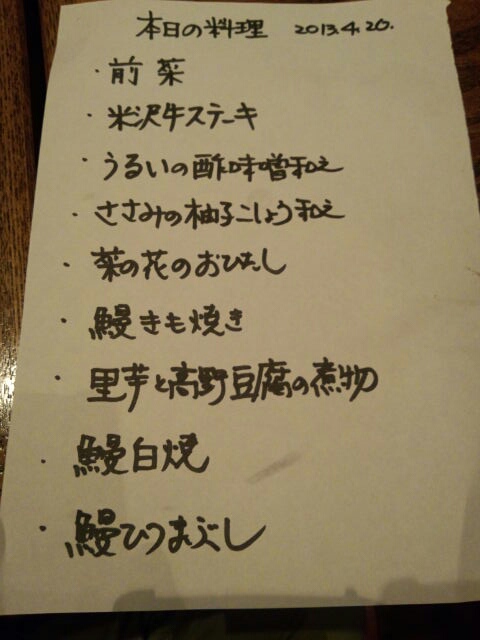 本日の料理 2013.4.20.
・前菜
・米沢牛ステーキ
・うるいの酢味噌和え
・ささみの柚子こしょう和え
・菜の花のおひたし
・鰻きも焼き
・里芋と高野豆腐の煮物
・鰻白焼
・鰻ひつまぶし